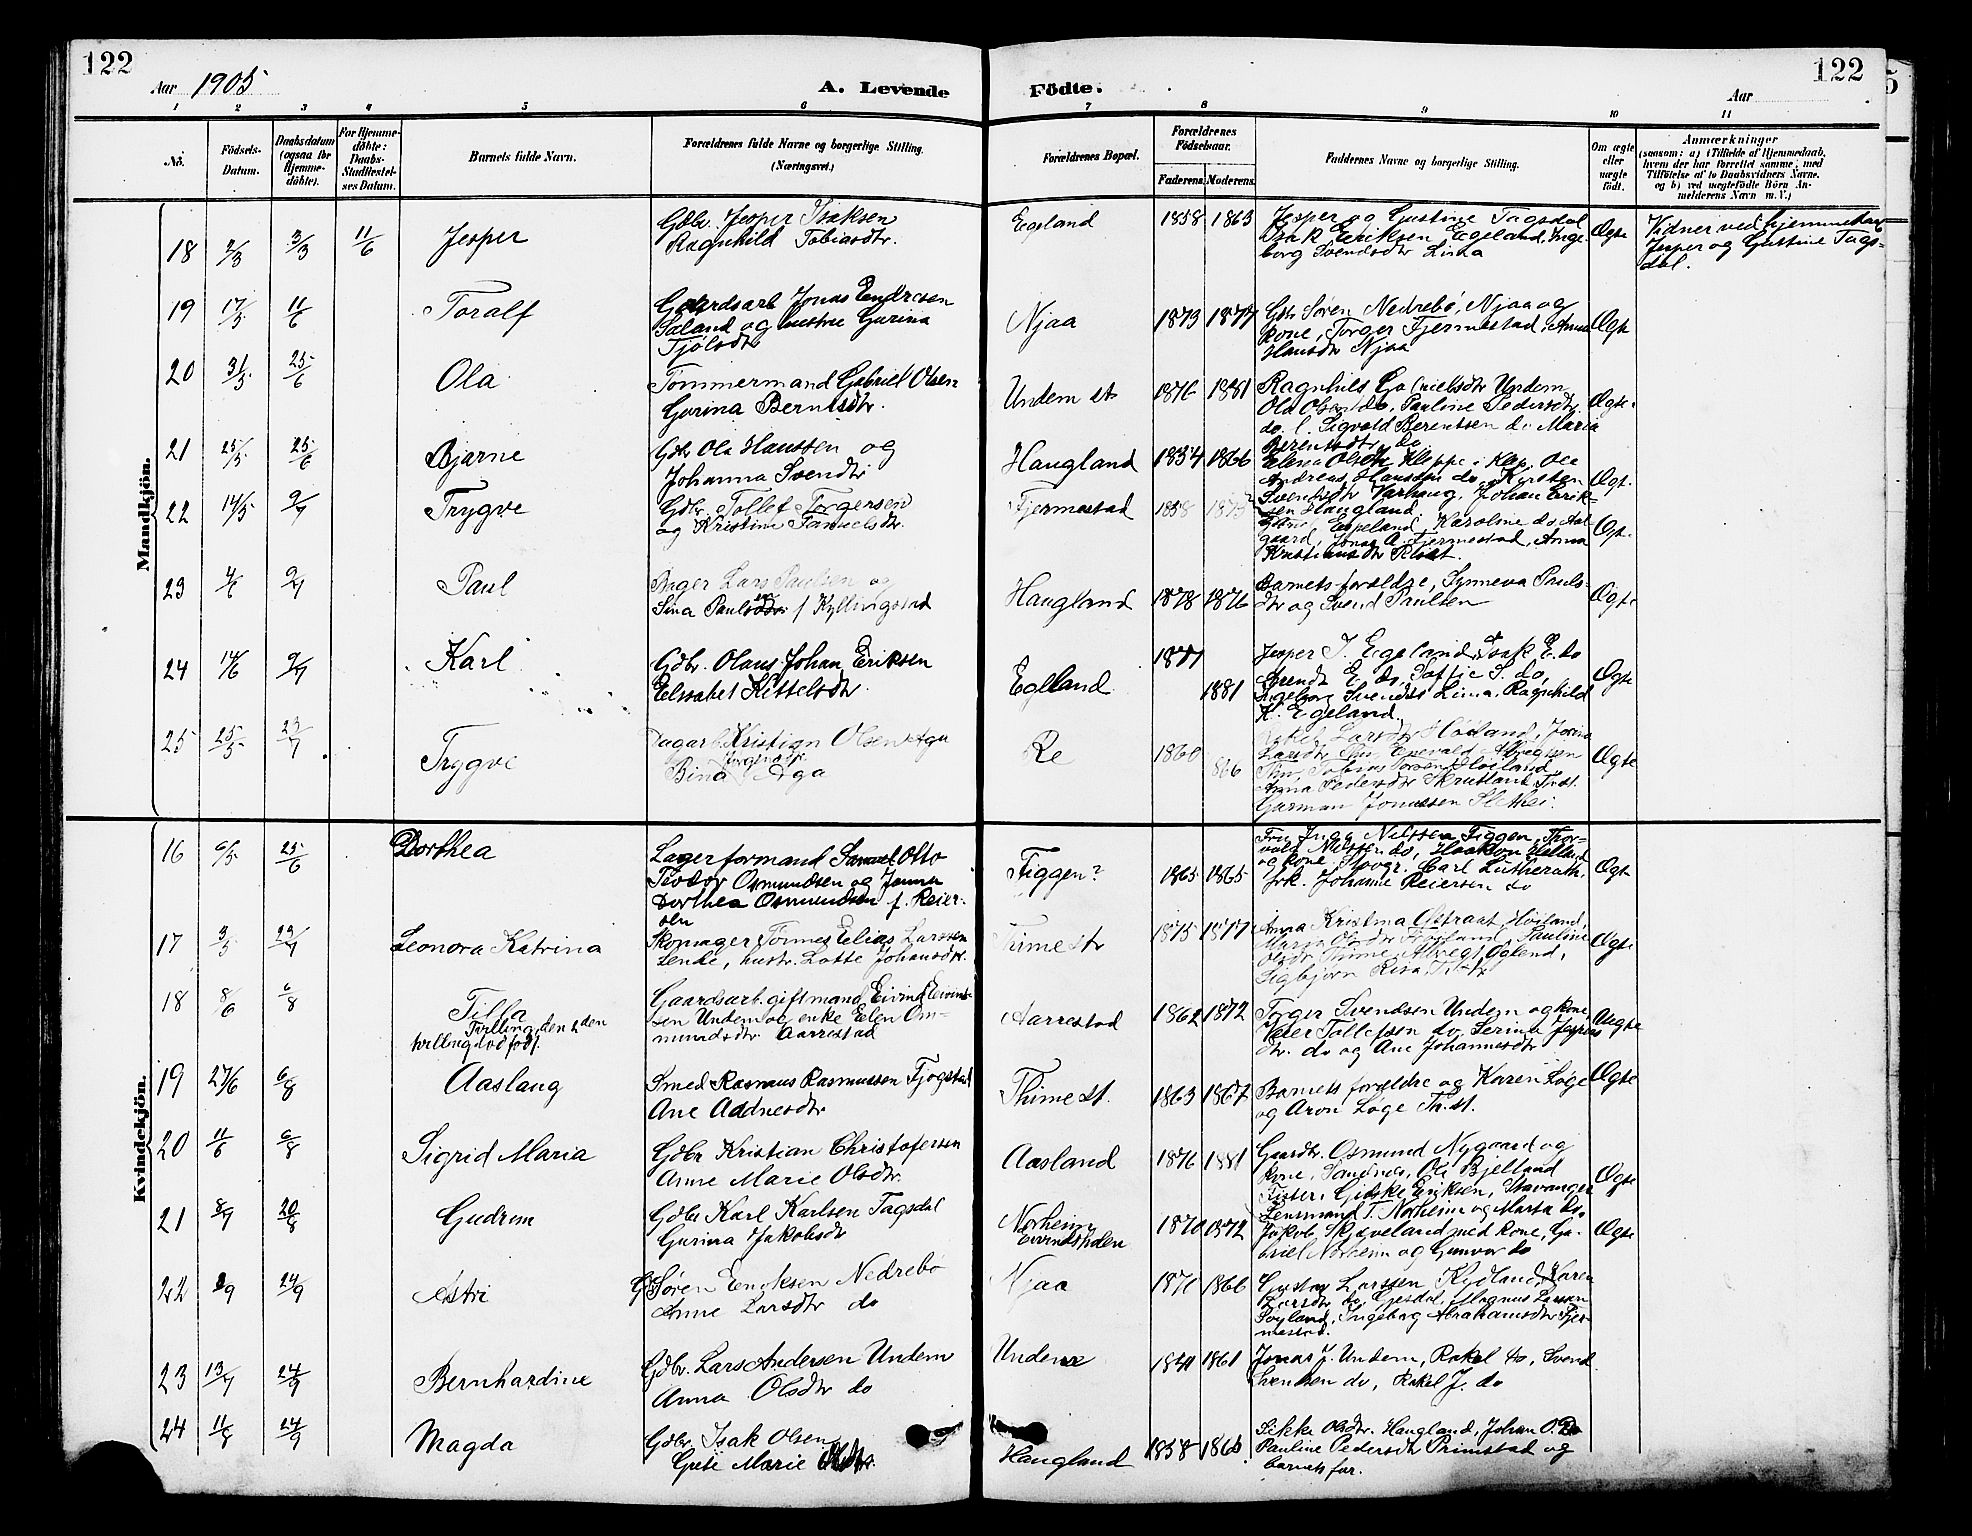 122
122
Aar 1905
A. Levende
Födte.
Aar
1 2 3 4 5 6 7 8 9 10 11
No.
Födsels-
Datum.
Daabsdatum
(ogsaa for
Hjemme-
döbte).
For Hjemme-
döbte:
Daabs-
Stadfæstel-
ses Datum.
Barnets fulde Navn.
Forældrenes fulde Navne og borgerlige Stilling.
(Næringsvei.)
Forældrenes Bopæl.
Forældrenes
Födselsaar.
Faderens. Moderens.
Faddernes Navne og borgerlige Stilling.
Om ægte
eller
uægte
födt.
Anmærkninger
(saasom: a) i Tilfælde af Hjemmedaab,
hvem der har forrettet samme, med
Tilföielse af to Daabsvidners Navne.
og b) ved uægtefödte Börn An-
melderens Navn m. V.)
Mandkjön.
18 2/3 3/3 11/6 Jesper
Gdbr. Jesper Isaksen
Ragnhild Tobiasdtr.
Egeland 1858 1863
Jesper og Gustine Tagsdal
Isak Eriksen Egeland, Inge-
borg Svendsdtr Lima
Ægte
Vidner ved hjemmedaab
Jesper og Gustine Tags-
dal.
19 17/5 11/6 Toralf
Gaardsarb Jonas Endresen
Saland og hustru Gurina
Tjølsdtr
Njaa 1873 1877
Gdbr Søren Nedrebø, Njaa og
kone, Torger Fjermestad, Anna
Hansdtr Njaa
Ægte
20 31/5 25/6 Ola
Tømmermand Gabriel Olsen
Gurina Berntsdtr.
Undem st 1876 1881
Ragnhild Gabrielsdtr Undem
Ola Olsen do, Pauline Pedersdtr
do. Sigvald Berentsen do Maria
Berentsdtr do
Ægte.
21 25/5 25/6 Bjarne
Gdbr Ola Hanssen og
Johanna Svendtr
Haugland 1854 1866
Elena Olsdtr Kleppe i Klep, Ole
Andreas Hansen do, Kirsten
Svendsdtr Varhaug, Johan Erik-
sen Haugland
Ægt.
22 14/5 9/7 Trygve
Gdbr. Tollef Torgersen
og Kristine Samuelsdtr.
Fjermestad 1858 1873
Espeland, Karoline do, Aal-
gaard, Jonas A. Fjermestad, Anna
Kristiansdtr
Ægt.
23 4/6 9/7 Paul
Bager Lars Paulsen og
Sina Paulsen f Kyllingstad
Haugland 1878 1876
Barnets forældre, Synneva Pauls-
dtr og Svend Paulsen
Ægte
24 14/6 9/7 Karl
Gdbr. Olaus Johan Eriksen
Elisabet Kittelsdtr
Egeland 1877 1881
Jesper I. Egeland, Isak E. do
Berendt E. do, Soffie S. do,
Ingeborg Svendsdtr Lima, Ragnhild
K. Egeland
Ægte
25 25/5 23/7 Trygve
Dagarb. Kristian Olsen Aga
Bina Aga
Re 1860 866
Larsdtr Høiland, Jorina
Larsdtr Thu, Enevald Abregtsen
Thu, Tobias Høiland
Anna Pedersdtr Skrudland, Tu st.
Garman Jonassen Slethei.
Ægte
Kvindekjön.
16 6/5 25/6 Dorthea
Lagerformand Samuel Otto
Teodor Osmundsen og Jenna
Dorthea Osmundsen f. Reier-
sen
Figgen? 1865 1865
Fru Inga Nilssen Figgen, Thor-
vald Nilssen do, Haakon Helland
og kone, Stavgr. Carl Lutherath,
frk. Johanne Reiersen do
Ægt
17 3/5 23/7 Leonora Katrina
Skomager Tønnes Elias Larssen
Lende, hustr. Lotte Johansdtr.
Thime st 1875 1877
Anna Kristina Østraat, Høiland,
Maria Høiland, Pauline
Olsdtr Thime, Abregt Øgland,
Sigbjørn Risa, T. st
Ægte
18 8/6 6/8 Tilla
Tvilling, den 2den
tvilling dødfødt.
Gaardsarb. gift mand Eivind Eivind-
sen Undem og enke Elen Om-
mundsdtr Aarrestad
Aarrestad 1862 1872
Torger Svendsen Undem og kone,
Peder Tollefsen do, Serina Jespers
dtr. do og Ane Johannesdtr
Uægte
19 27/6 6/8 Aaslaug
Smed Rasmus Rasmussen Fjogstad
Ane Aadnesdtr
Thime st. 1863 1867
Barnets forældre og Karen Løge
og Aron Løge Th. st.
Ægte
20 11/6 6/8 Sigrid Maria
Gdbr Kristian Christofersen
Anne Marie Olsdtr.
Aasland 1876 1881
Gaardbr. Osmund Nygaard og
kone, Sandnes, Ole Bjelland
Fister, Gidske Eriksen, Stavanger
Ægte
21 8/7 20/8 Gudrun
Gdbr Karl Karlsen Tagsdal
Gurina Jakobsdtr
Norheim
Eivindsholen 1870 1872
Lensmand T. Norheim og Marta do,
Jakob Skjæveland med kone, Ga-
briel Norheim og Gunvor do
Ægte
22 2/9 24/9 Astri
G. Søren Eeriksen Nedrebø
Anne Larsdtr do
Njaa 1871 1866
Gustav Larssen Kydland, Karen
Larsdtr do, Gjesdal, Magnus Larsen
Søyland, Ingeborg Abrahamsdtr Fjer-
mestad.
23 13/7 24/9 Bernhardine
Gdbr. Lars Andersen Undem
Anna Olsdtr do
Undem 1861
Jonas J. Undem, Rakel do, Svend
Svendsen do, Rakel J. do
24 11/8 24/9 Magda
Gdbr. Isak Olsen
Grete Marie
Haugland 1858
Sikke Olsdtr. Haugland, Johan O. Do
Pauline Pedersdtr Primstad og
barnets far.